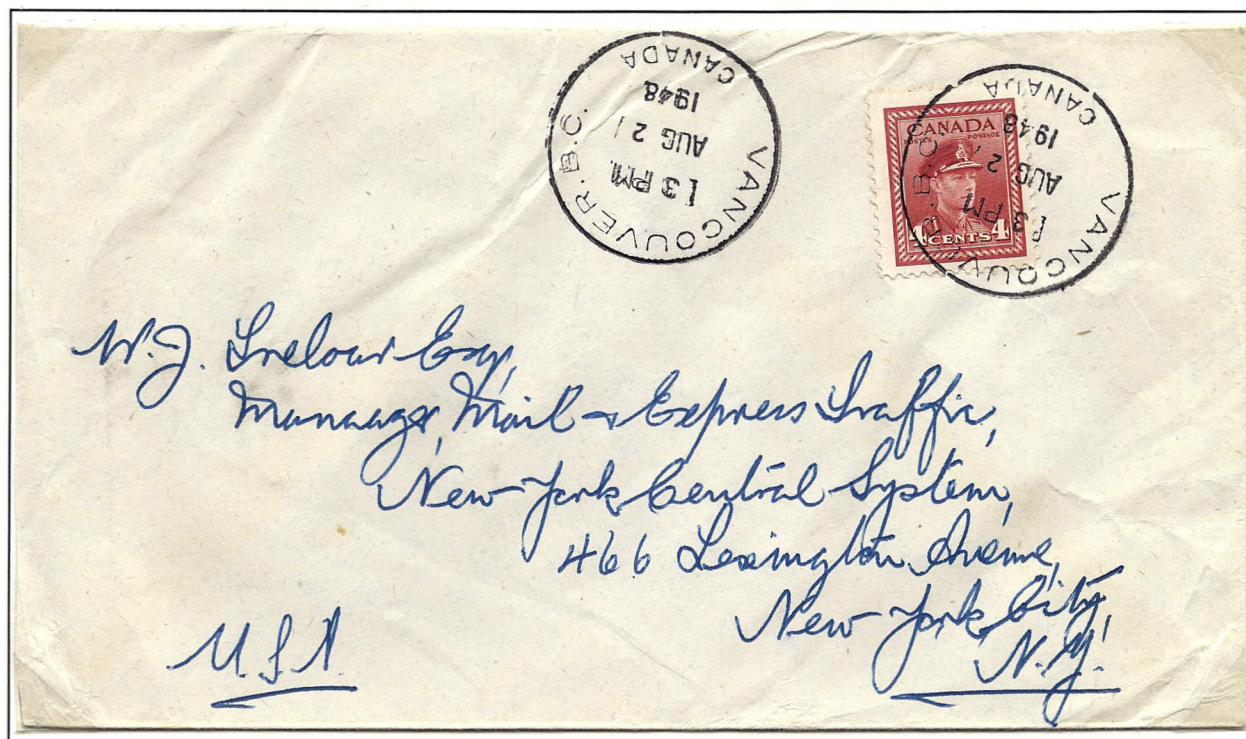 VANCOUVER.B.C.
3 PM
AUG 2
1948
CANADA
VANCOUVER B.C.
3 PM
AUG 2
1948
CANADA
CANADA
POSTES POSTAGE
4 CENTS 4
W.J. Treloar Esq,
Manager, Mail & Express Traffic,
New York Central System,
466 Lexington Avenue,
New York City,
N.Y.
U.S.A.